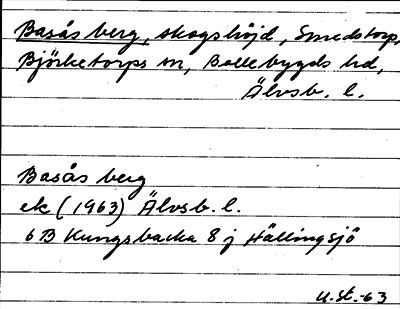 Basås berg, skogshöjd, Smedstorp,
Björketorps sn, Bollebygds hd,
Älvsb. l.
Basås berg
ek (1963) Älvsb. l.
6B Kungsbacka 8 j Hällingsjö
U.St.-63